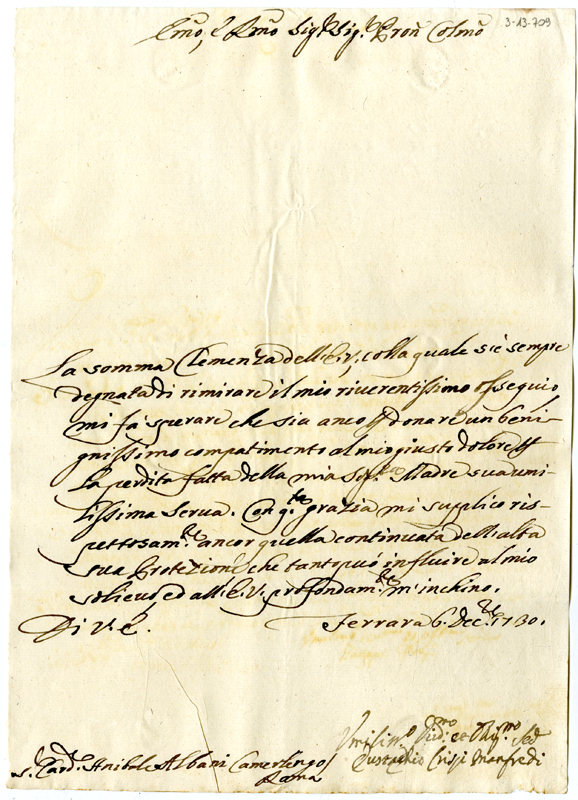 3-13.709
Emo, e Rmo Sigr. Sig.r Pron Colmo
La somma Clemenza dell'E.V., colla quale s'è sempre
degnata di rimirare il mio riverentissimo ossequio
mi fà sperare che sia anco p donare un beni-
gnissimo compatimento al mio giusto dolore p
la perdita fatta della mia Sig.ra Madre sua umi-
lissima serva. Con q.ta grazia mi supplico ris-
pettosam.te ancor quella continuata dell'alta
sua Protezione che tanto può influire al mio
solievo, ed all'E.V. profondam.te m'inchino.
Di V.E. Ferrara 6. Dec.re 1730.
Umilissimo Dev.mo et Obl.mo
Eustachio Crispi Manfredi
S.r Card. Anibale Albani Camerlengo
Roma